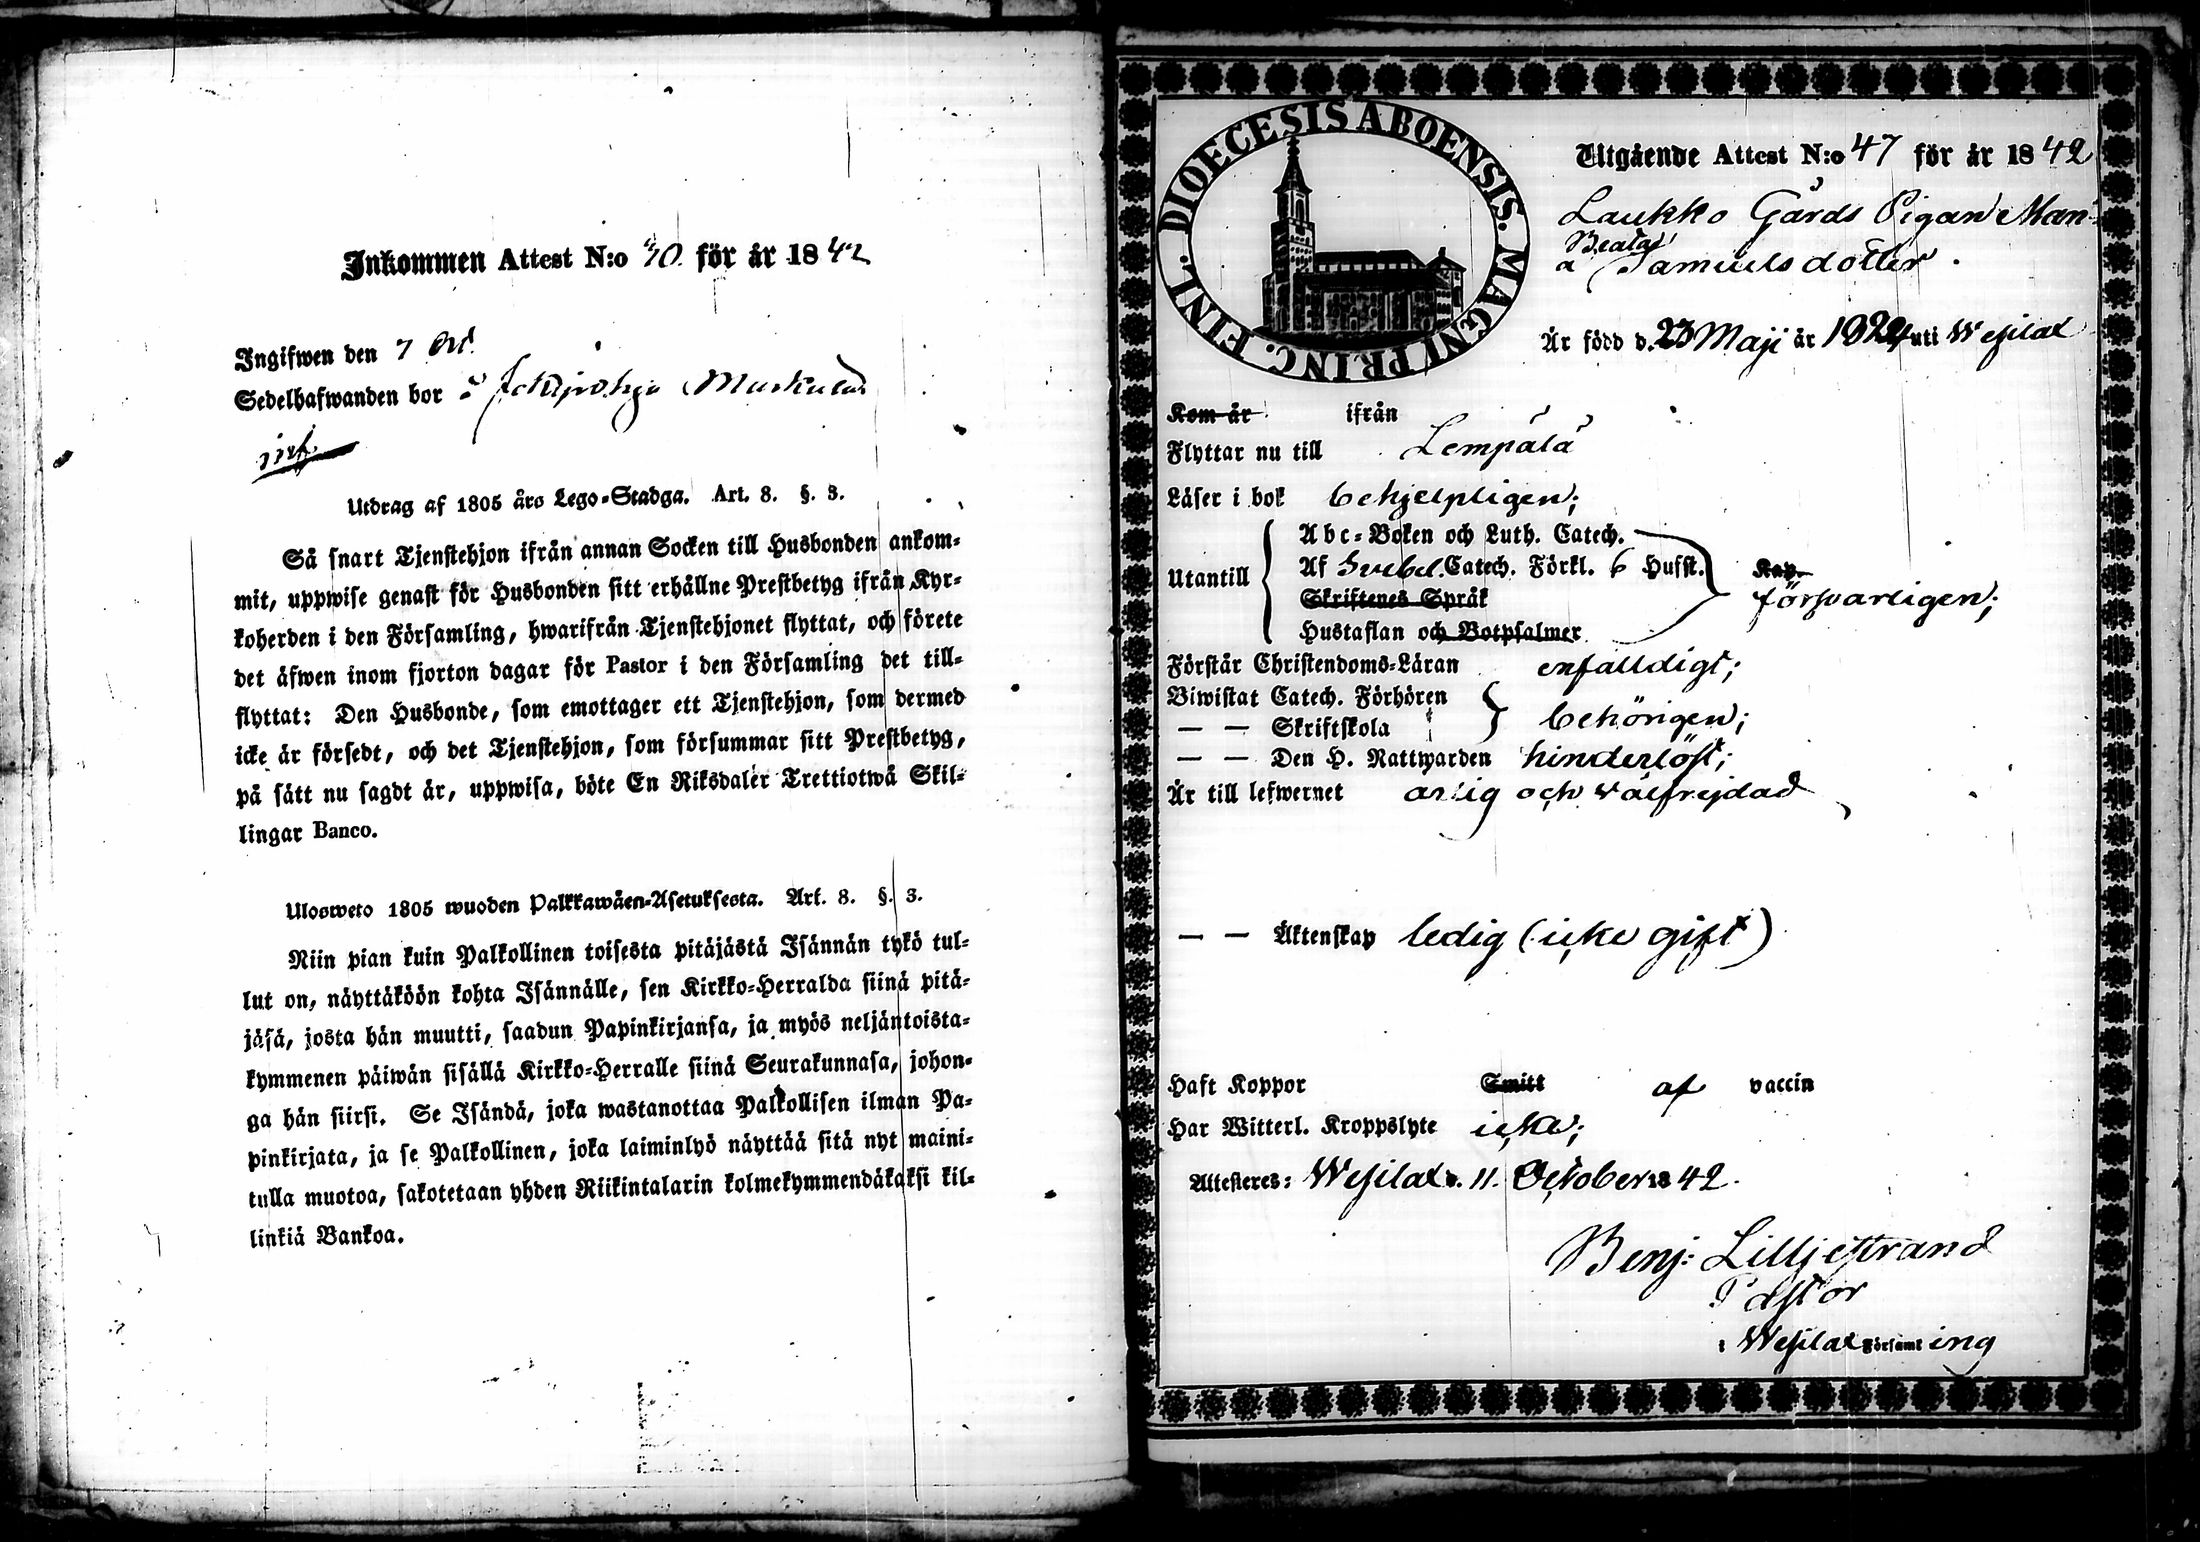 Inkommen Attest N:o 40 för år 1842
Ingifwen den 7
Sedelhafwanden bor
Utdrag af 1805 års Lego-Stadga. Art. 8. §. 3.
Så snart Tjenstehjon ifrån annan Socken till Husbonden ankom-
mit, uppwise genast för Husbonden sitt erhållne Prestbetyg ifrån Kyr-
koherden i den Församling, hwarifrån Tjenstehjonet flyttat, och förete
det äfwen inom fjorton dagar för Pastor i den Församling det till-
flyttat: Den Husbonde, som emottager ett Tjenstehjon, som dermed
icke är försedt, och det Tjenstehjon, som försummar sitt Prestbetyg,
på sätt nu sagdt är, uppwisa, böte En Riksdaler Trettiotwå Skil-
lingar Banco.
Ulosweto 1805 wuoden Palkkawäen-Asetuksesta. Art. 8. §. 3.
Niin pian kuin Palkollinen toisesta pitäjästä Isännän tykö tul-
lut on, näyttäköön kohta Isännälle, sen Kirkko-Herralda siinä pitä-
jäsä, josta hän muutti, saadun Papinkirjansa, ja myös neljäntoista-
kymmenen päiwän sisällä Kirkko-Herralle siinä Seurakunnasa, johon-
ga hän siirsi. Se Isändä, joka wastanottaa Palkollisen ilman Pa-
pinkirjata, ja se Palkollinen, joka laiminlyö näyttää sitä nyt maini-
tulla muotoa, sakotetaan yhden Riikintalarin kolmekymmendäkaksi kil-
linkiä Bankoa.
DIOECESIS ABOENSIS. MAGNI PRINC. FINL.
Utgående Attest N:o 47 för år 1842
Laukko Gårds Pigan Man-
Beata
a Samuelsdotter.
Är född d. 23 Maji år 1824 uti Wesilax
Kom år ifrån
Flyttar nu till Lempälä
Läser i bok behjelpligen;
Utantill
Abc-Boken och Luth. Catech.
Af Svebel. Catech. Förkl. 6 Hufst. Kap.
Skriftenes Språk försvarligen;
Hustaflan och Botpsalmer
Förstår Christendoms-Läran enfalldigt;
Biwistat Catech. Förhören
— — Skriftskola behörigen;
— — Den H. Nattwarden hinderlöst;
Är till lefwernet ärlig och välfrejdad
— — Äktenskap ledig (icke gift)
Haft Koppor Smitt af vaccin
Har Witterl. Kroppslyte icke;
Attesteres: Wesilax d. 11. October 1842.
Benj: Lilljestrand
Pastor
i Wesilax Församling